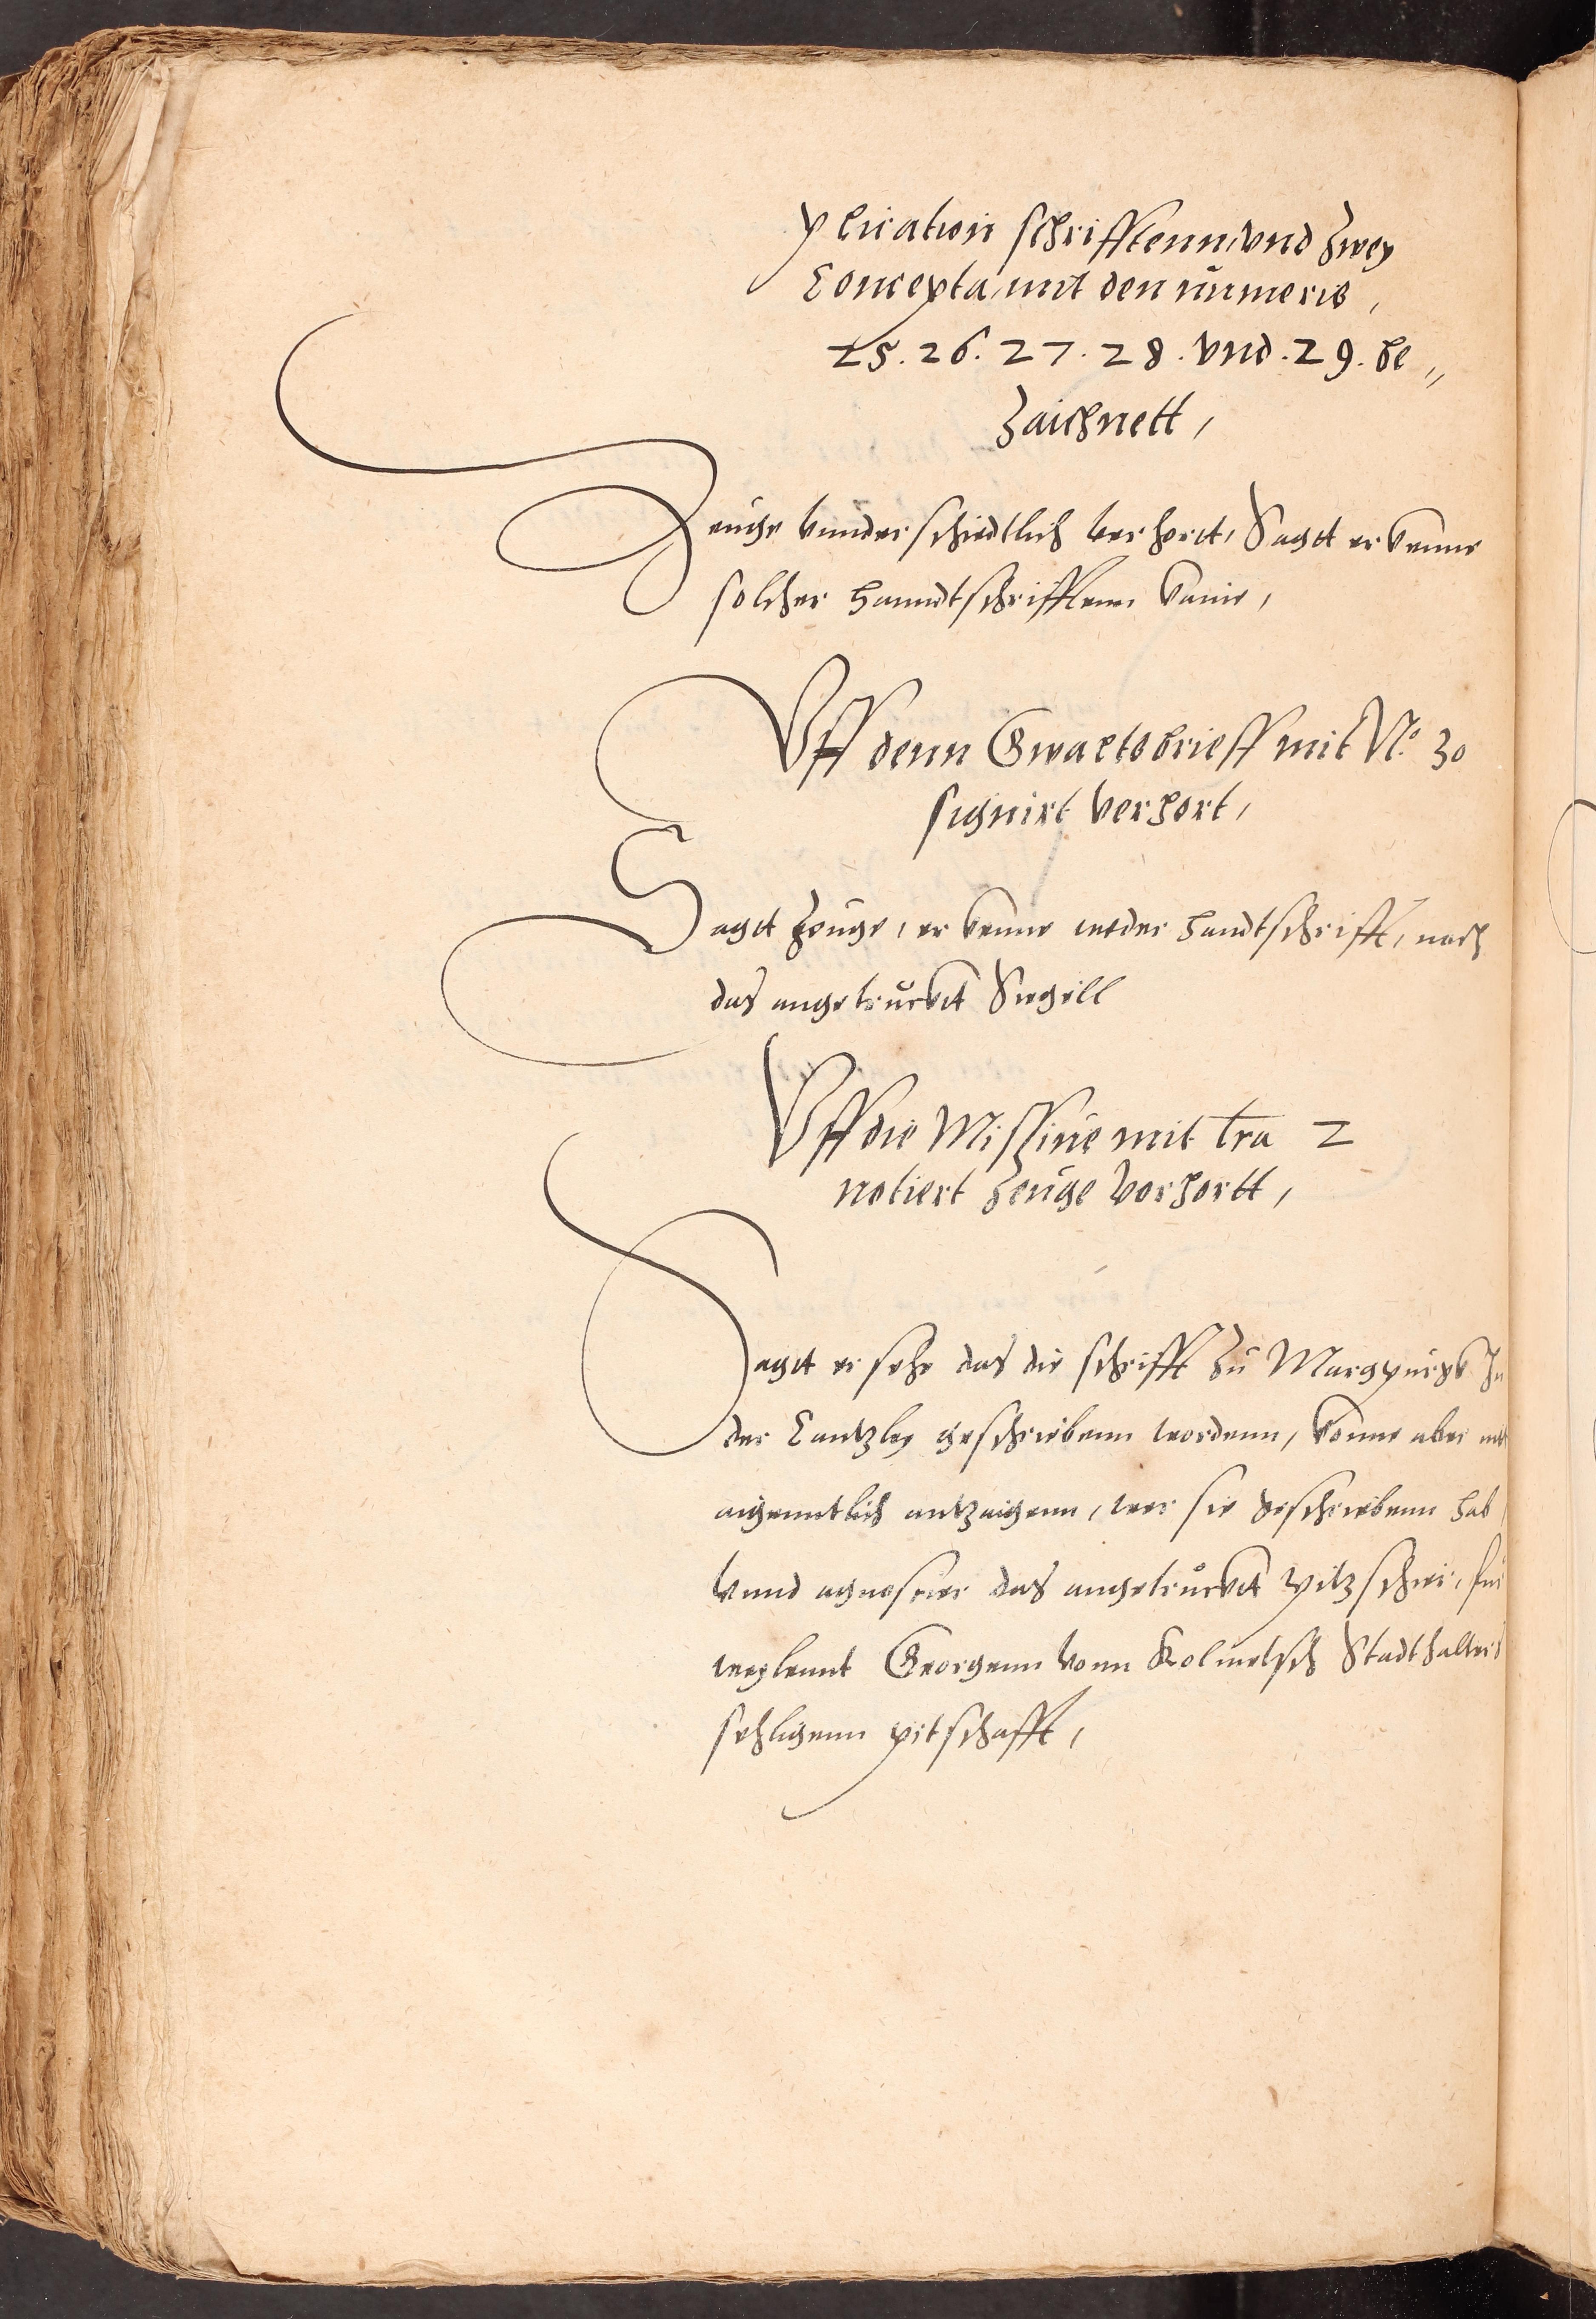 plication schrifftenn, vnd zwey
Concepta, mit den numeris,
25. 26. 27. 28. vnd. 29. be„
zaichnett,
Zeuge vnnderschiedtlich verhort, Sagt er kenne
solcher Hanndtschrifftenn kaine,
Vff denn Gwaltsbrieff mit No. 30
signirt verhort,
Sagt Zeuge, er kenne weder handtschrifft, noch
das angetruckt Siegell
Vff die Missiue mit Lra 2
notiert Zeuge verhortt,
Sagt er sehe das die schrifft zu Margpurgk In
der Cantzley geschriebenn wordenn, konne aber nit
aigenntlich antzaigenn, wer sie geschriebenn hab,
vnnd agnoscier das angetruckt pitzschier, für
weylannt Georgenn vonn Kolmatsch Stadthalters
sehligenn pitschafft,